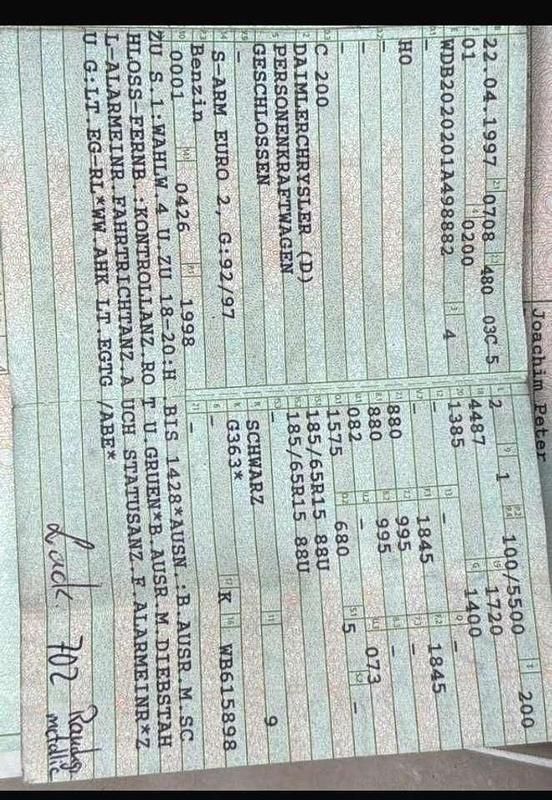 Joachim Peter
22.04.1997 0708 480 03C 5
01 0200
WDB2020201A498882 4
-
H0
-
-
C 200
DAIMLERCHRYSLER (D)
PERSONENKRAFTWAGEN
GESCHLOSSEN
-
S-ARM EURO 2, G:92/97
Benzin
0001 0426 1998
2 1 100/5500 200
4487 1720
1385 1400
- - -
- 1845 1845
880 995 -
880 995 -
082 - 073
1575 680 5 -
185/65R15 88U
185/65R15 88U
-
SCHWARZ 9
G363*
- K WB615898
-
ZU S.1:WAHLW.4 U.ZU 18-20:H .BIS 1428*AUSN.:B.AUSR.M.SC
HLOSS-FERNB.:KONTROLLANZ.RO T U.GRUEN*B.AUSR.M.DIEBSTAH
L-ALARMEINR.FAHRTRICHTANZ.A UCH STATUSANZ.F.ALARMEINR*Z
U G:LT.EG-RL*WW.AHK LT.EGTG /ABE*
Lack. 702
metallic